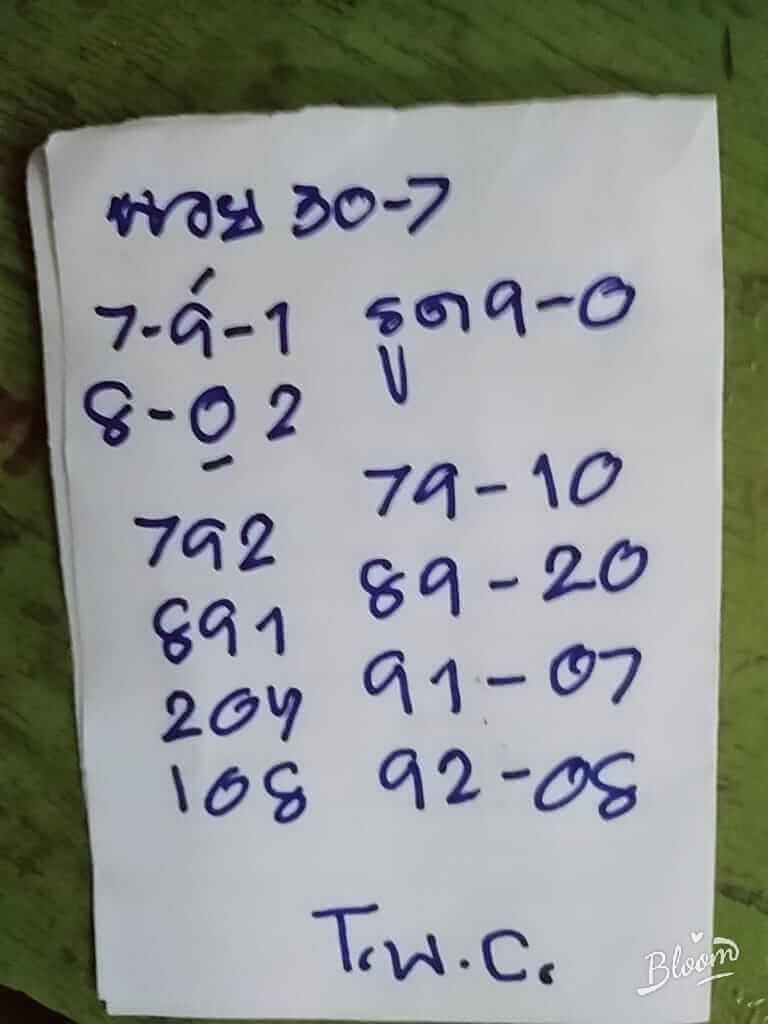 หวย 30-7
7-9-1 รูด 9-0
8-0 2
79-10
792
89-20
891
91-07
207
108 92-08
T.พ.C.
Bloom